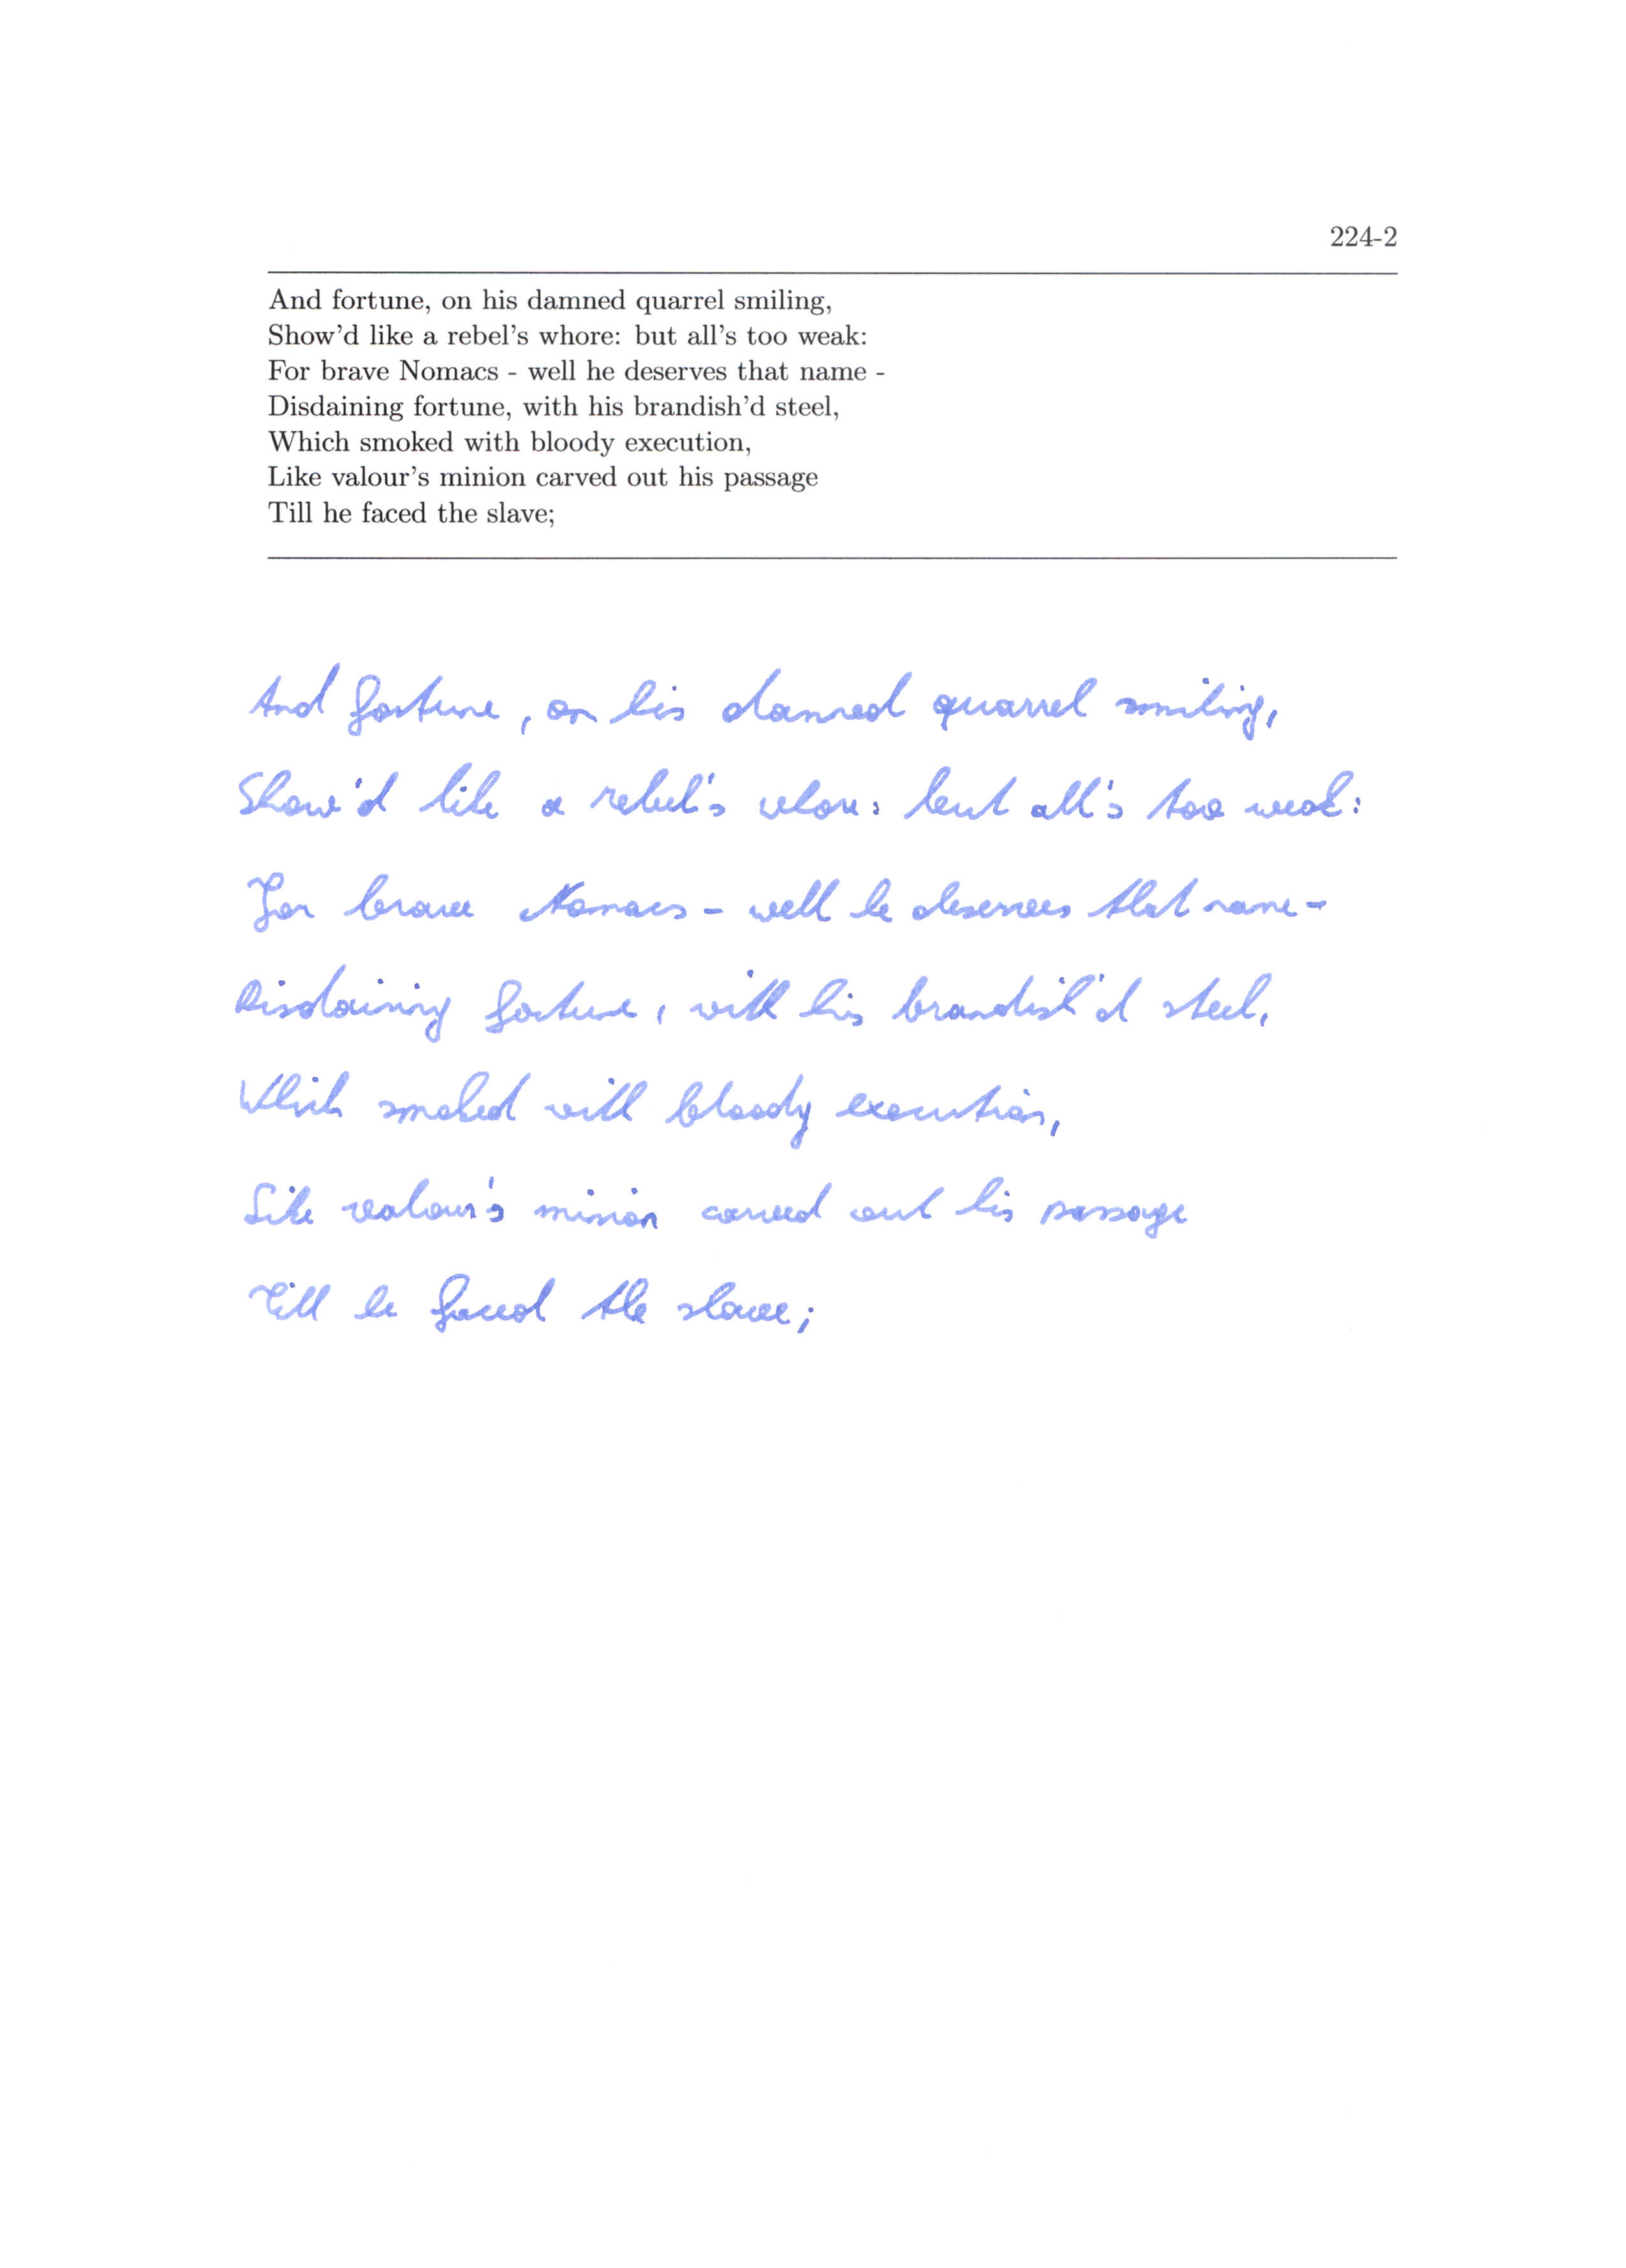 224-2
And fortune, on his damned quarrel smiling,
Show'd like a rebel's whore: but all's too weak:
For brave Nomacs - well he deserves that name -
Disdaining fortune, with his brandish'd steel,
Which smoked with bloody execution,
Like valour's minion carved out his passage
Till he faced the slave;
And fortune, on his damned quarrel smiling,
Show'd like a rebel's whore: but all's too weak:
For brave Nomacs - well he deserves that name -
Disdaining fortune, with his brandish'd steel,
Which smoked with bloody execution,
Like valour's minion carved out his passage
Till he faced the slave;